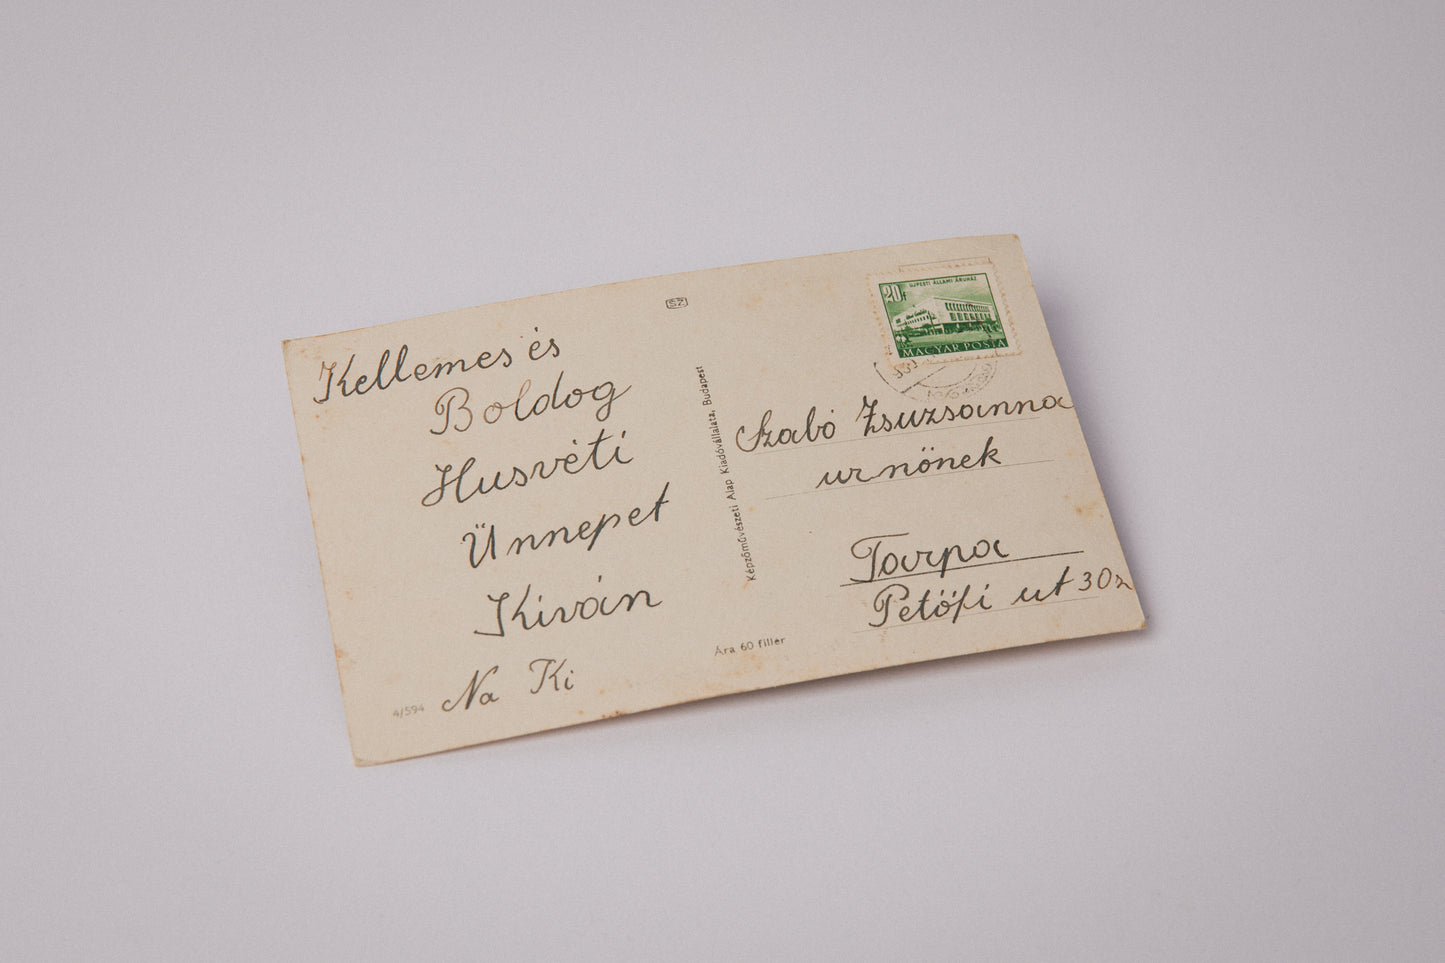 Kellemes és
Boldog
Husvéti
Ünnepet
Kiván
Na Ki
4/594
SZ
Képzőművészeti Alap Kiadóvállalata, Budapest
Ára 60 fillér
20f
UJPESTI ÁLLAMI ÁRUHÁZ
MAGYAR POSTA
Szabó Zsuzsanna
urnőnek
Tarpa
Petőfi ut 30z